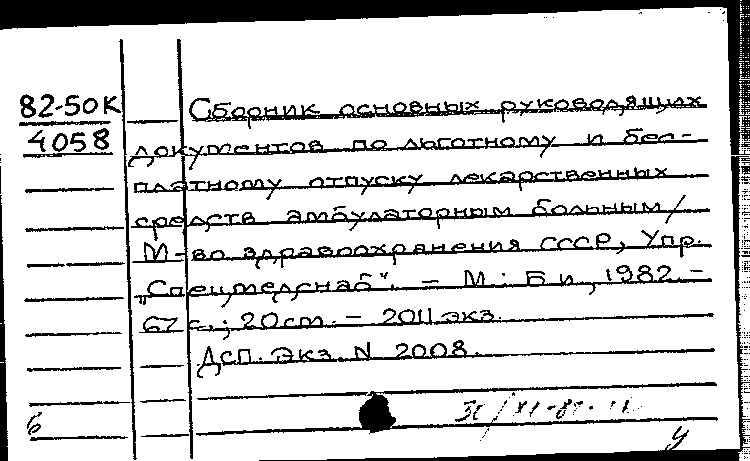 82-50К
4058
Сборник основных руководящих
документов по льготному и бес-
платному отпуску лекарственных
средств амбулаторным больным/
М-во здравоохранения СССР, Упр.
„Спецмедснаб". - М.: Б и, 1982. -
67 с.; 20 см. - 2011 экз.
Дсп. Экз. N 2008.
б
у